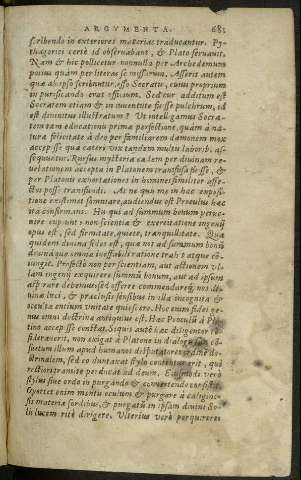 ARGVMENTA. 681
scribendo in exteriores materias traducantur. Py-
thagorici certè id obseruabant, & Plato seruauit,
Nam & hic pollicetur nonnulla per Archedemum
potius quàm per literas se missurum. Asserit autem
quæ ab ipso scribuntur, esse Socratis, cuius proprium
in purificando erat officium. Sed cur additum est
Socratem etiam & in iuuentute fuisse pulchrum, id
est diuinitus illustratum? Vt intelligamus Socra-
tem tam educationis prima perfectione, quàm à na-
tura felicitate à deo per familiarem dæmonem mox
accepisse quæ cæteri vix tandem multis laborib. as-
sequuntur. Rursus mysteria ealem per diuinam re-
uelationem accepta in Platonem transfusa fuisse, &
per Platonis exhortationes in homines similiter affe-
ctos posse transfundi. At ne quis me in hac expo-
sitione existimet somniare, audiendus est Proculus hæc
ita confirmans. His qui ad summum bonum perue-
nire cupiunt, non scientia & exercitatione ingenij
opus est, sed firmitate, quiete, tranquillitate. Quæ
quidem diuina fides est, quæ nos ad summum bonum
diuináque omnia ineffabili ratione trahit atque cō-
iungit. Profectò non per scientiam, aut actionem vl-
lam ingenij exquirere summum bonum, aut ad ipsum
aspirare debemus, sed offerre commendaréque nos di-
uinæ luci, & præclusis sensibus in illa incognita &
occulta entium vnitate quiescere. Hoc enim fidei ge-
nus omni doctrina antiquius est. Hæc Proculus à Pla-
tino accepisse constat. Siquis autem hæc diligenter con-
siderauerit, non exiget à Platone in dialogis con-
suetum illum apud humanos disputatores ordinē do-
ctrinalem, sed eo duntaxat stylo contentus erit, qui
rectiori tramite perducat ad deum. Eiusmodi verò
stylus siue ordo in purgando & conuertendo consistit.
Oportet enim mentis oculum & purgare à caligine
sis materiæ sordibus, & purgatū in ipsum diuini So-
lis lucem ritè dirigere. Vlterius verò perquirere